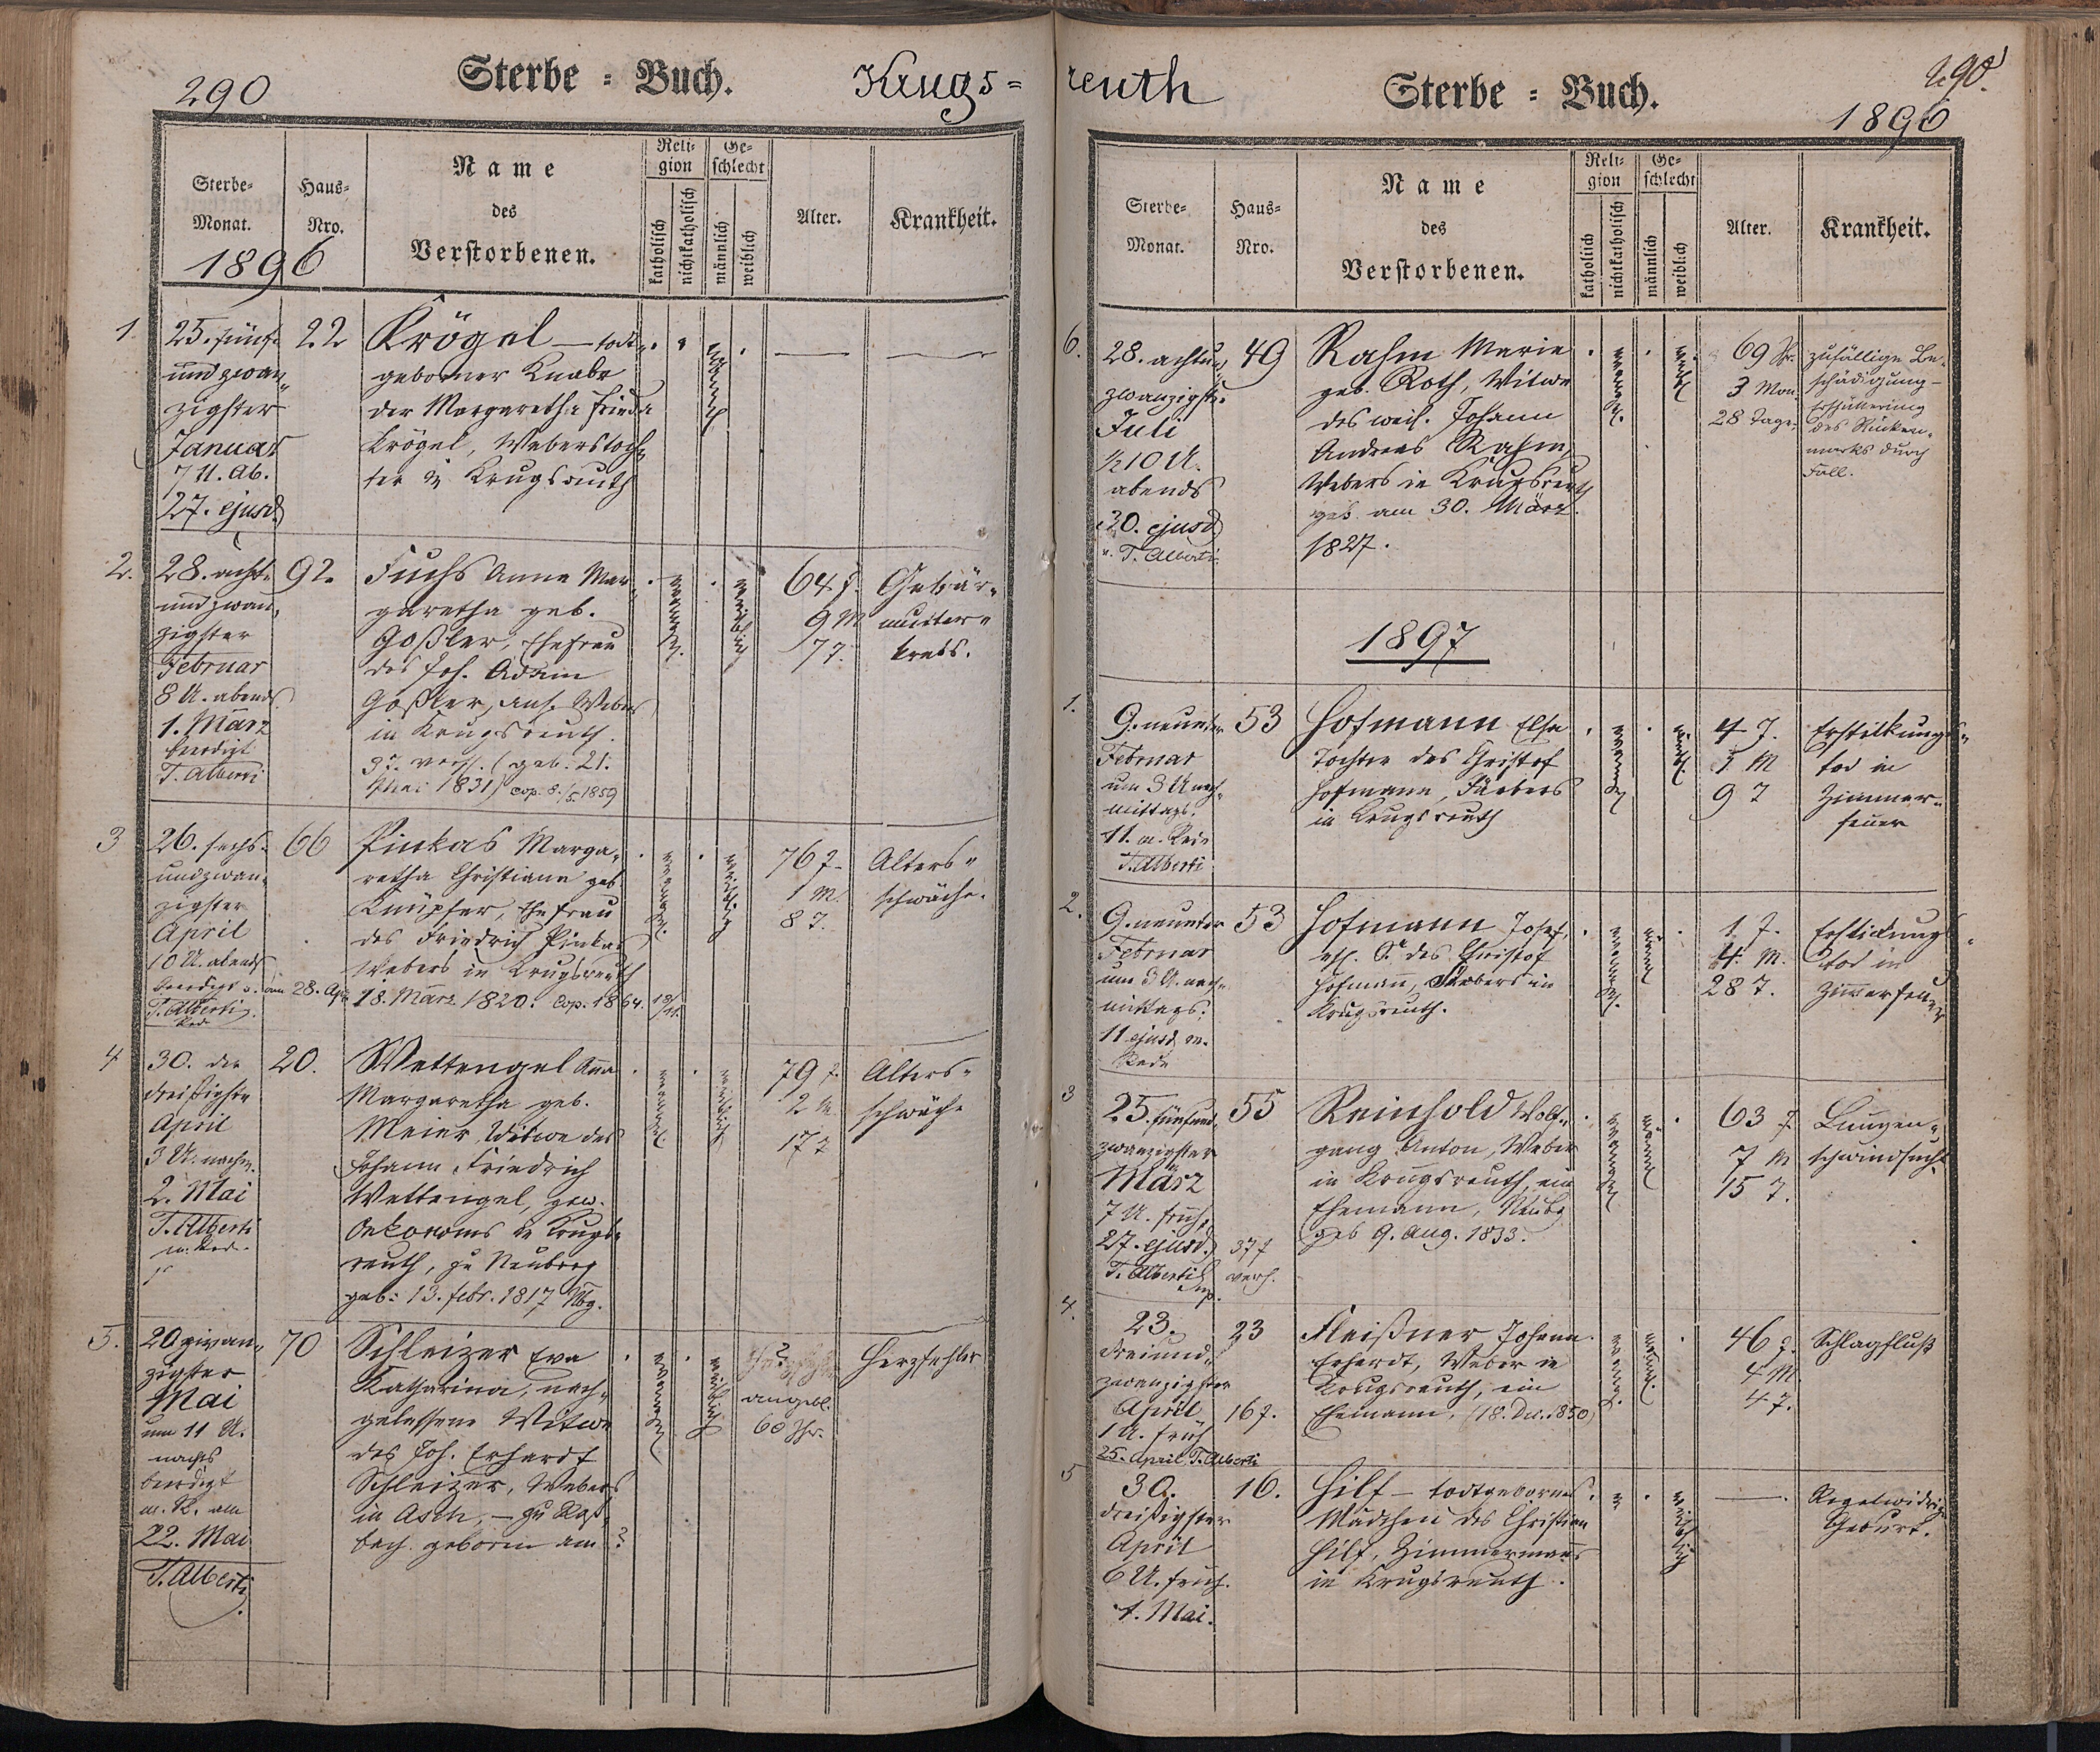 290
Sterbe = Buch.
Krugs=
Sterbe-
Monat.
1896
Haus-
Nro.
Name
des
Verstorbenen.
Reli-
gion
katholisch
nichtkatholisch
Ge-
schlecht
männlich
weiblich
Alter.
Krankheit.
1.
25. fünf-
und zwan-
zigster
Januar
7 U. Ab.
27. ejusd.
22
Krögel — todt-
geborner Knabe
der Margaretha Frieda
Krögel, Weberstoch-
ter in Krugsreuth
2.
28. acht-
und zwan-
zigster
Februar
8 U. abends
1. März
beerdigt
T. Alberti
92
Fuchs Anna Mar-
garetha geb.
Goßler, Ehefrau
des Joh. Adam
Goßler, Webers
in Krugsreuth.
37. verh. (geb. 21.
Mai 1831) cop. 8./5. 1859
64 J.
9 M
7 T.
Gebär-
mutter-
krebs.
3
26. sechs-
undzwan-
zigster
April
10 U. abends
beerdigt v. am 28. Apr.
T. Alberti
Red.
66
Pinkas Marga-
retha Christiana geb.
Knüpfer, Ehefrau
des Friedrich Pinkas
Webers in Krugsreuth
18. März 1820. Cop. 1864.
76 J.
1 M.
8 T.
Alters-
schwäche.
4
30. der
dreißigste
April
3 U. nachm.
2. Mai
T. Alberti
m. Red.
20.
Wettengel Anna
Margaretha geb.
Meier, Witwe des
Johann Friedrich
Wettengel, gew.
Oekonoms in Krugs-
reuth, zu Neuberg
geb. 13. Febr. 1817 Nbg.
79 J.
2 M.
17 T
Alters-
schwäche
5.
20 zwan-
zigster
Mai
um 11 U.
nachts
beerdigt
m. R. am
22. Mai
T. Alberti
70
Schleizer Eva
Katharina, nach-
gelassene Witwe
des Joh. Erhardt
Schleizer, Webers
in Asch, — zu Roß-
bach geboren am ?
?
angebl.
60 Jhr.
Herzfehler
reuth
Sterbe = Buch.
290.
1896
Sterbe-
Monat.
Haus-
Nro.
Name
des
Verstorbenen.
Reli-
gion
katholisch
nichtkatholisch
Ge-
schlecht
männlich
weiblich
Alter.
Krankheit.
6.
28. achtund
zwanzigste
Juli
1/2 10 U.
abends
30. ejusd
v. T. Alberti
49
Rahm Marie
geb. Roth, Witwe
des weil. Johann
Andreas Rahm,
Webers in Krugsreuth
geb. am 30. März
1827.
69 Jhr.
3 Mon.
28 Tage.
zufällige Be-
schädigung —
Erschütterung
des Rücken-
marks durch
Fall.
1897
1.
9. neunter
Februar
um 3 U nach-
mittags.
11. m. Rede
T. Alberti
53
Hofmann Elsa
Tochter des Christof
Hofmann, Färbers
in Krugsreuth
4 J.
1 M
9 T
Erstickungs-
tod in
Zimmer-
feuer
2.
9. neunter
Februar
um 3 U. nach-
mittags.
11 ejusd m.
Rede
53
Hofmann Josef,
ehl. S. des Christof
Hofmann, Färbers in
Krugsreuth.
1 J.
4. M.
28 T.
Erstickungs-
tod in
Zimmerfeuer
3
25. fünfund-
zwanzigster
März
7 U. früh,
27. ejusd.
T. Alberti
55
37 J
verh.
Reinhold Wolf-
gang Anton, Weber
in Krugsreuth, ein
Ehemann,
geb 9. Aug. 1833.
63 J
7 M
15 T.
Lungen-
schwindsucht
4.
23.
dreiund-
zwanzigster
April
1 U. früh
25. April T. Alberti
23
16 J.
Fleißner Johann
Erhardt, Weber in
Krugsreuth, ein
Ehemann. (18. Dec. 1850)
46 J.
4 M.
4 T.
Schlagfluß
5
30.
dreißigster
April
6 U. früh.
1. Mai.
16.
Hilf — todtgebornes
Mädchen des Christian
Hilf, Zimmermanns
in Krugsreuth.
Regelwidrige
Geburt.